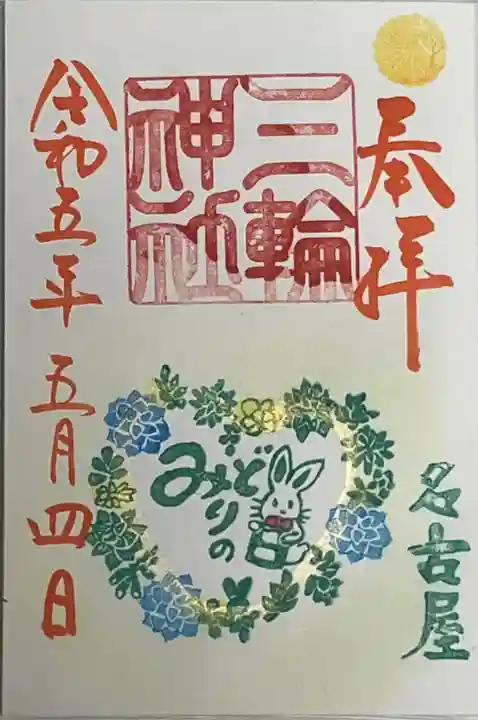 奉拝
三輪
神社
令和五年五月四日
みどりの日
名古屋